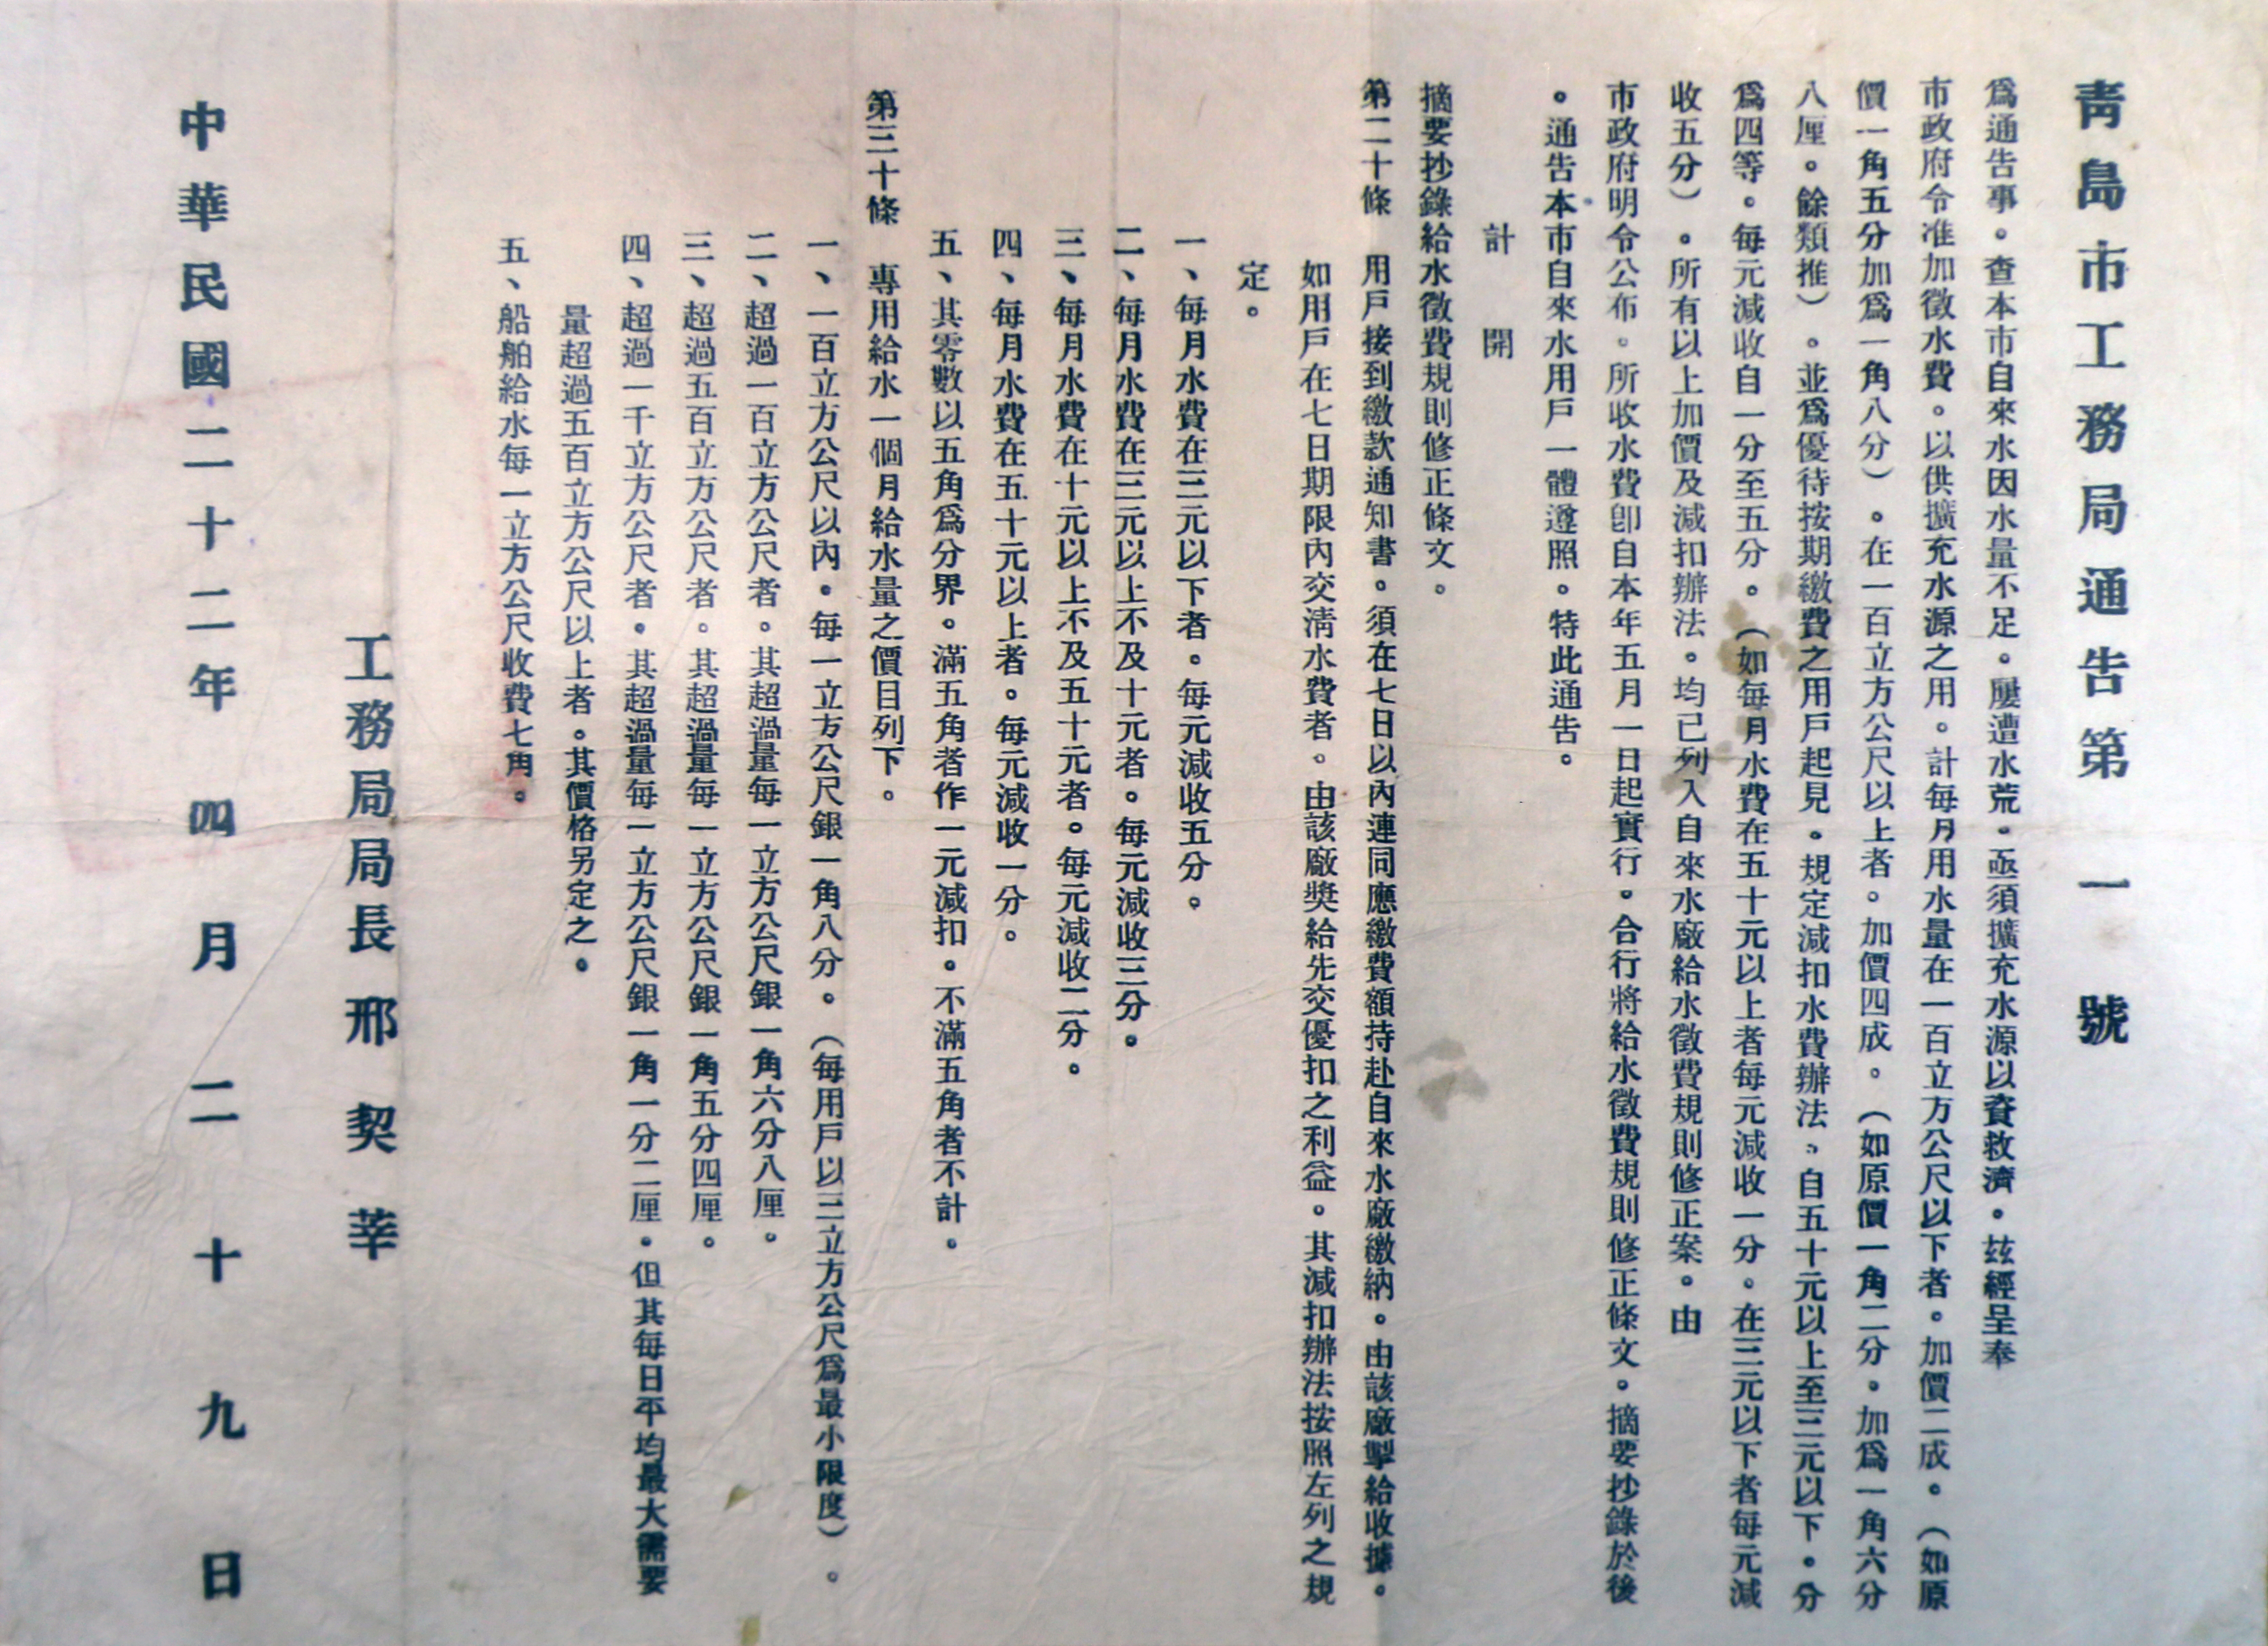 青島市工務局通告第一號
爲通告事。查本市自來水因水量不足。屢遭水荒。亟須擴充水源以資救濟。玆經呈奉
市政府令准加徵水費。以供擴充水源之用。計每月用水量在一百立方公尺以下者。加價二成。(如原
價一角五分加爲一角八分)。在一百立方公尺以上者。加價四成。(如原價一角二分。加爲一角六分
八厘。餘類推)。並爲優待按期繳費之用戶起見。規定減扣水費辦法。自五十元以上至三元以下。分
爲四等。每元減收自一分至五分。(如每月水費在五十元以上者每元減收一分。在三元以下者每元減
收五分)。所有以上加價及減扣辦法。均已列入自來水廠給水徵費規則修正案。由
市政府明令公布。所收水費卽自本年五月一日起實行。合行將給水徵費規則修正條文。摘要抄錄於後
。通告本市自來水用戶一體遵照。特此通告。
計開
摘要抄錄給水徵費規則修正條文。
第二十條 用戶接到繳款通知書。須在七日以內連同應繳費額持赴自來水廠繳納。由該廠掣給收據。
如用戶在七日期限內交淸水費者。由該廠獎給先交優扣之利益。其減扣辦法按照左列之規
定。
一、每月水費在三元以下者。每元減收五分。
二、每月水費在三元以上不及十元者。每元減收三分。
三、每月水費在十元以上不及五十元者。每元減收二分。
四、每月水費在五十元以上者。每元減收一分。
五、其零數以五角爲分界。滿五角者作一元減扣。不滿五角者不計。
第三十條 專用給水一個月給水量之價目列下。
一、一百立方公尺以內。每一立方公尺銀一角八分。(每用戶以三立方公尺爲最小限度)。
二、超過一百立方公尺者。其超過量每一立方公尺銀一角六分八厘。
三、超過五百立方公尺者。其超過量每一立方公尺銀一角五分四厘。
四、超過一千立方公尺者。其超過量每一立方公尺銀一角一分二厘。但其每日平均最大需要
量超過五百立方公尺以上者。其價格另定之。
五、船舶給水每一立方公尺收費七角。
工務局局長邢契莘
中華民國二十二年四月二十九日